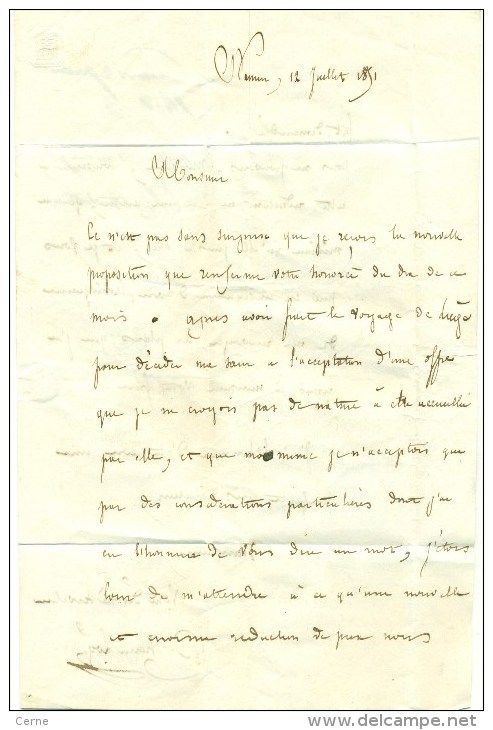 Namur, 12 Juillet 1851
Monsieur
Ce n'est pas sans surprise que je reçois la nouvelle
proposition que renferme votre honorée du dix de ce
mois. après avoir fait le voyage de Liège
pour décider ma sœur a l'acceptation d'une offre
que je ne croyois pas de nature à être accueillie
par elle, et que moi même je n'acceptois que
par des considérations particulières dont j'ai
eu l'honneur de vous dire un mot, j'étois
loin de m'attendre à ce qu'une nouvelle
et enorme reduction de prix nous
Cerne
www.delcampe.net